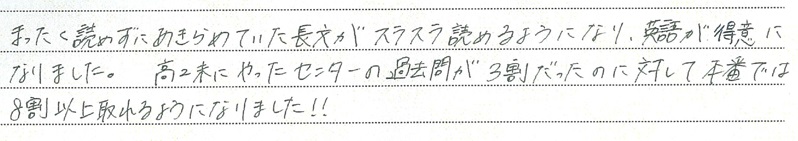 まったく読めずにあきらめていた長文がスラスラ読めるようになり、英語が得意に
なりました。 高2末にやったセンターの過去問が3割だったのに対して本番では
8割以上取れるようになりました!!